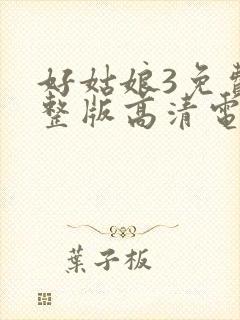 好姑娘3免費
整版高清電
葉子板